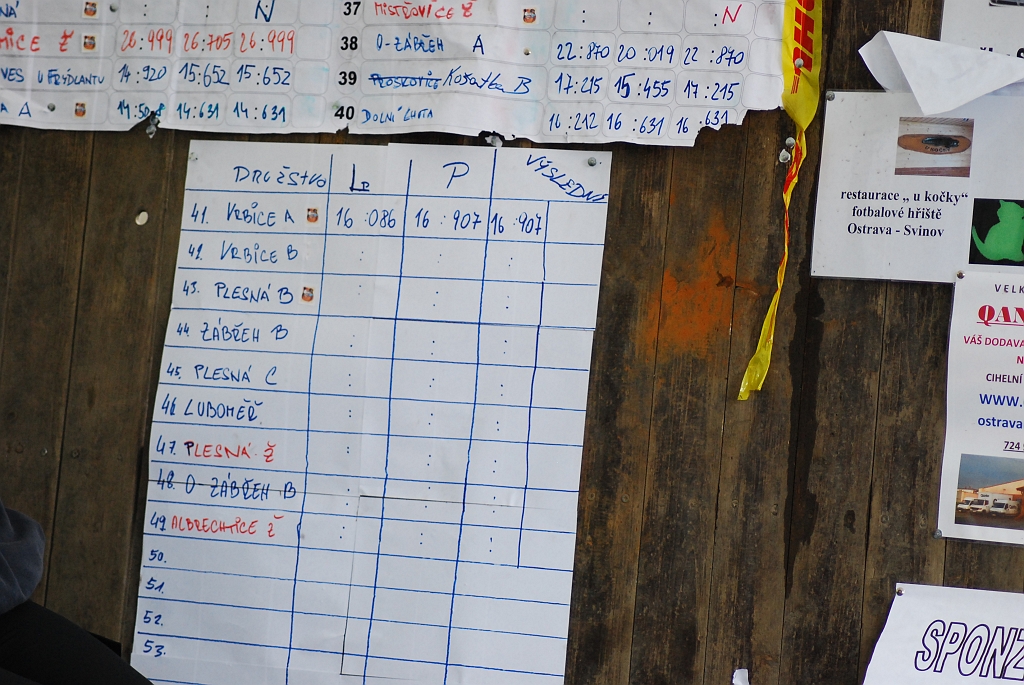 NÁ N
37 MISTŘOVICE Ž : : N
MICE Ž 26:999 26:705 26:999
38 O-ZÁBŘEH A 22:870 20:019 22:870
VES U FRÝDLANTU 14:920 15:652 15:652
39 Košatka B 17:215 15:455 17:215
A A 14:508 14:631 14:631
40 DOLNÍ LHOTA 16:212 16:631 16:631
DRUŽSTVO LP P VÝSLEDNÝ
41. VRBICE A 16:086 16:907 16:907
42. VRBICE B : : :
43. PLESNÁ B : : :
44. ZÁBŘEH B : : :
45. PLESNÁ C : : :
46 LUBOMĚŘ : : :
47. PLESNÁ Ž : : :
48. O-ZÁBŘEH B : : :
49 ALBRECHTICE Ž : : :
50.
51.
52.
53.
restaurace „ u kočky“
fotbalové hřiště
Ostrava - Svinov
VELK
QAN
VÁŠ DODAVA
N
CIHELNÍ
www.
ostrava
724
SPONZ